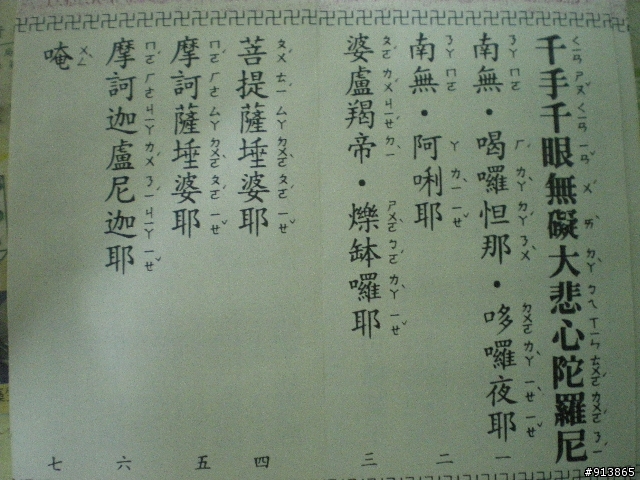 千手千眼無礙大悲心陀羅尼
南無・喝囉怛那・哆囉夜耶 一
南無・阿唎耶 二
婆盧羯帝・爍缽囉耶 三
菩提薩埵婆耶 四
摩訶薩埵婆耶 五
摩訶迦盧尼迦耶 六
唵 七
#913865